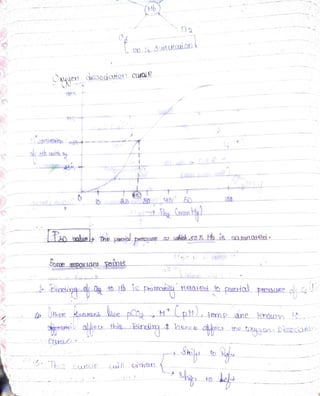 Hb
O2 O2
100 % saturation
Oxygen dissociation curve
0 10 20 30 40 50 100
PO2 (mmHg)
P50 value → The partial pressure at which 50 % Hb is saturated.
Some important points
Binding of O2 to Hb is primarily related to partial pressure of O2
Other factors like pCO2, H+ (pH), temp are known to
affect this binding & hence affect the oxygen dissociation
curve.
This curve will either
Shift to Right
Shift to Left